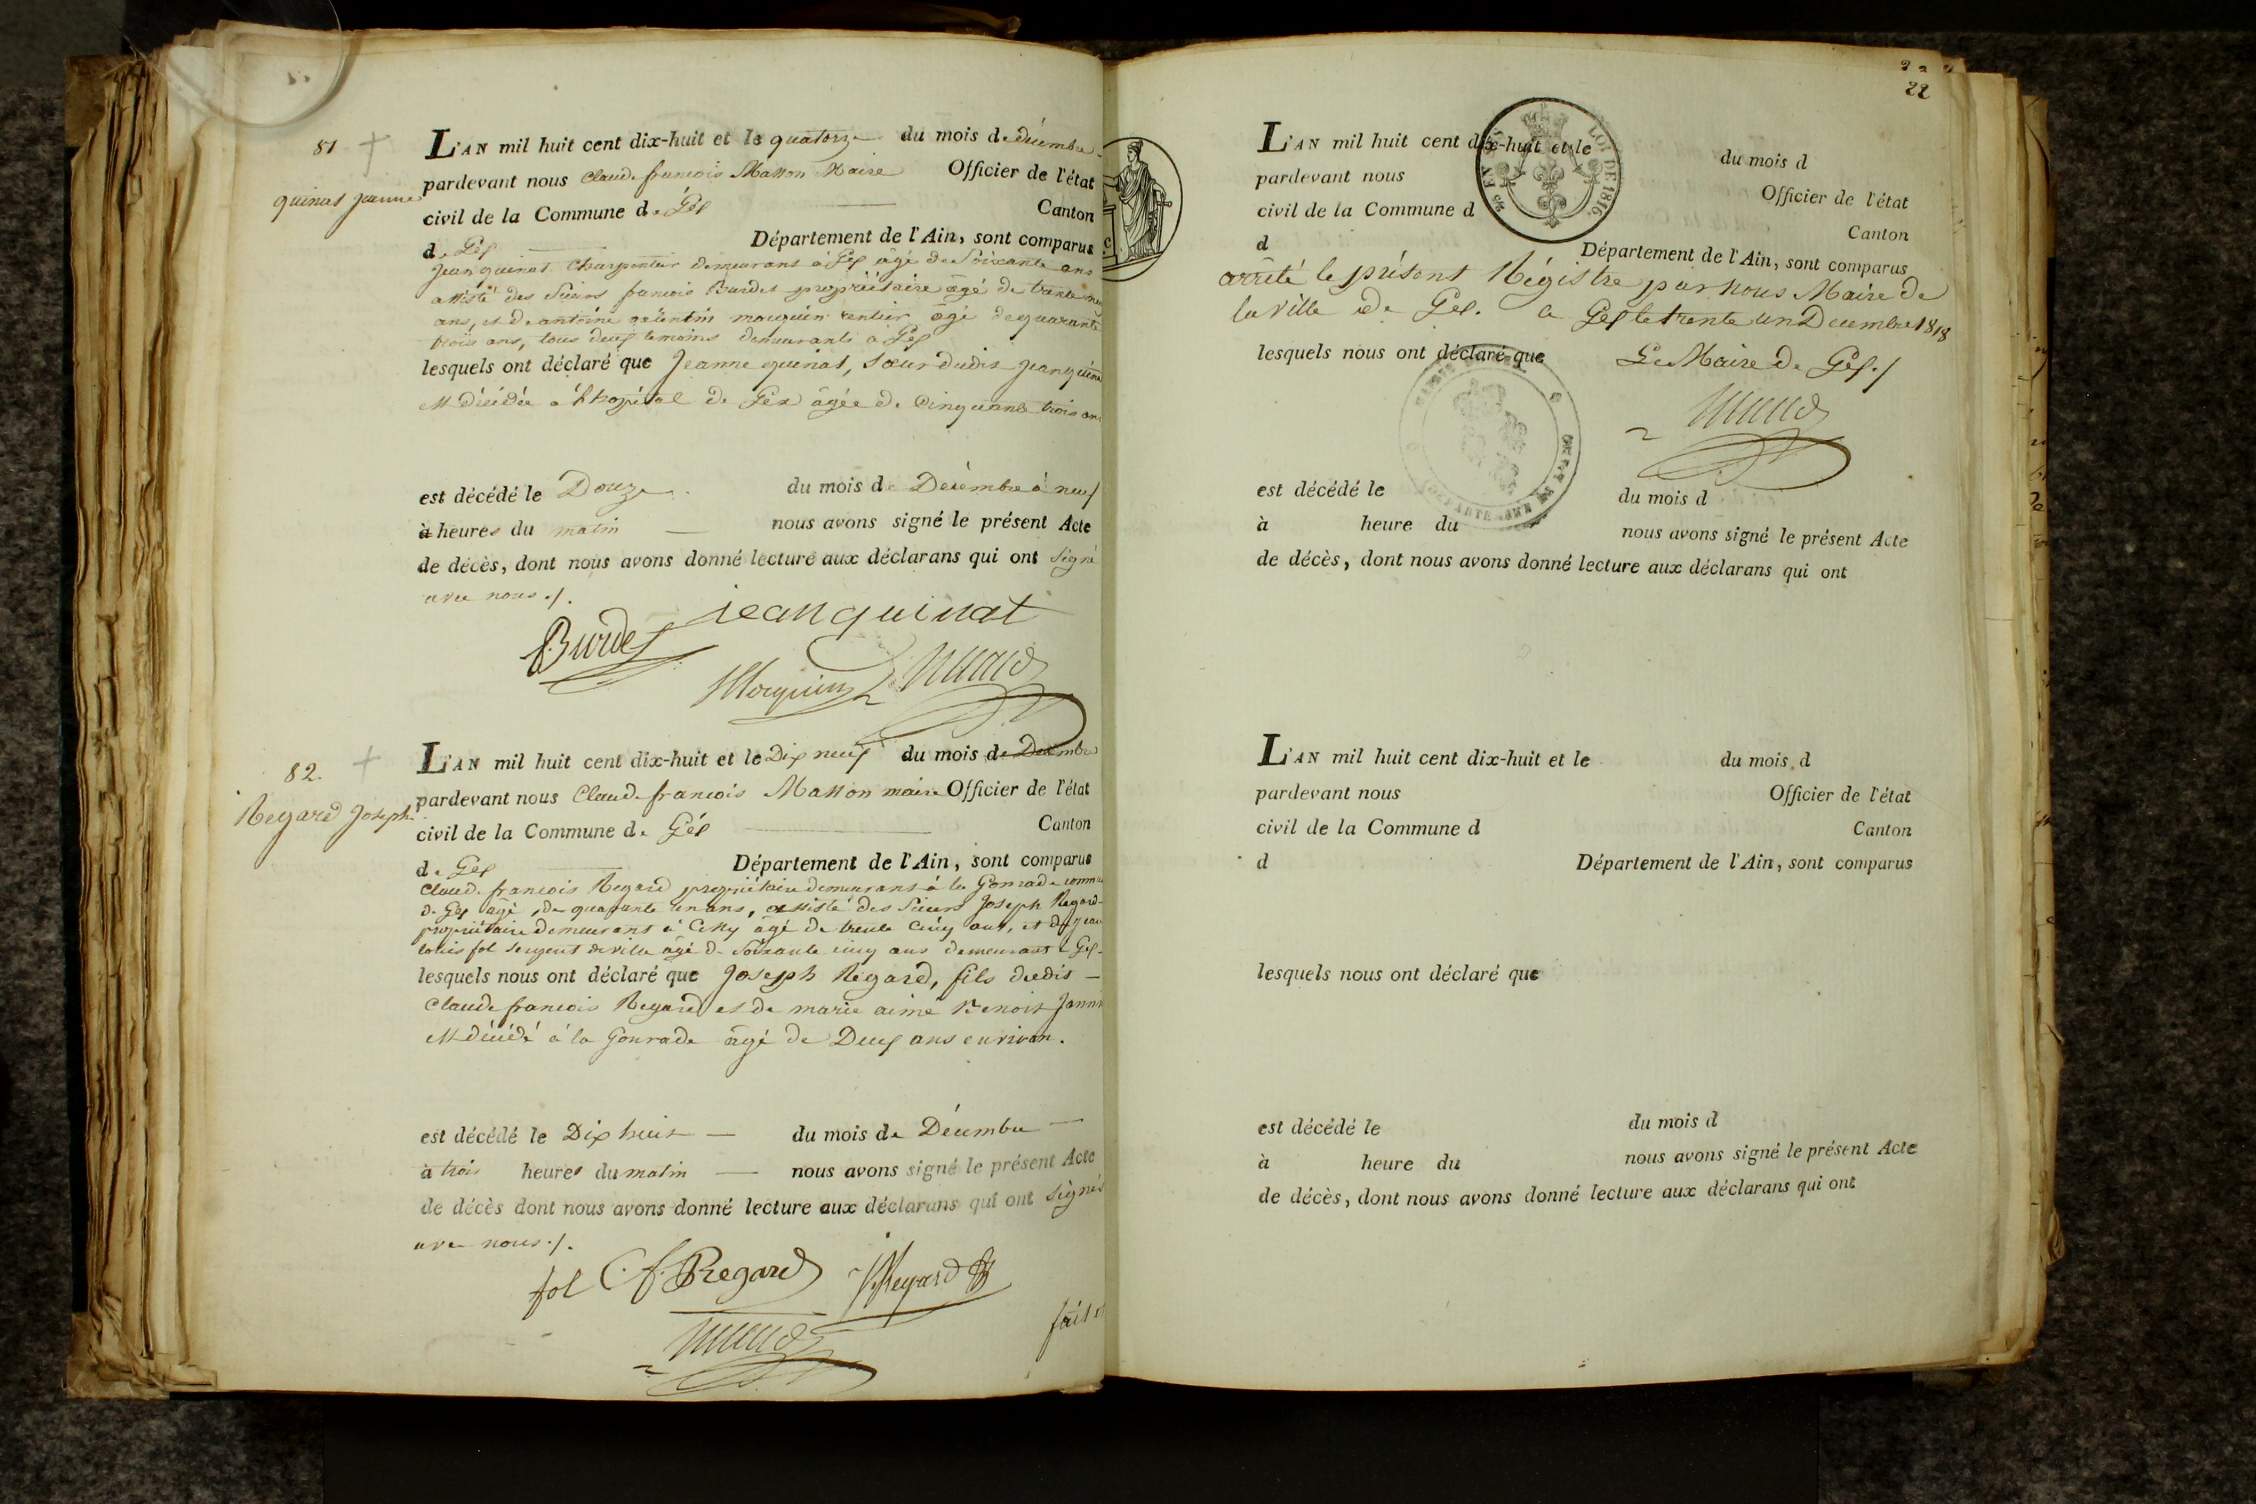 81
quinat jeanne
L'AN mil huit cent dix-huit et le quatorze du mois de décembre
pardevant nous Claude françois Masson Maire Officier de l'état
civil de la Commune de Gex Canton
de Gex Département de l'Ain, sont comparus
Jean quinat charpentier demeurant à Gex âgé de Soixante ans
assisté des Sieurs françois Burdet propriétaire âgé de trente neuf
ans, et de antoine valentin mocquin rentier âgé de quarante
trois ans, tous deux temoins demeurants à Gex
lesquels ont déclaré que Jeanne quinat, sœur dudit jean quinat
est décédée à l'hopital de Gex âgée de Cinquante trois ans
est décédé le Douze du mois de Décembre à neuf
à heures du matin nous avons signé le présent Acte
de décès, dont nous avons donné lecture aux déclarans qui ont signé
avec nous ./.
Burdet jean quinat
Mocquin
82.
Regard Joseph
L'AN mil huit cent dix-huit et le Dix neuf du mois de Décembre
pardevant nous Claude françois Masson maire Officier de l'état
civil de la Commune de Gex Canton
de Gex Département de l'Ain, sont comparus
Claude françois Regard propriétaire demeurant à la Gonrade commune
de Gex âgé de quarante un ans, assisté des Sieurs Joseph Regard
propriétaire demeurant à Cessy âgé de trente cinq ans, et de jean
louis fol sergent de ville âgé de Soixante cinq ans demeurant à Gex
lesquels nous ont déclaré que Joseph Regard, fils dudit
Claude françois Regard et de marie aimé Benoit Jannin
est décédé à la Gonrade âgé de Deux ans environ.
est décédé le Dix huit du mois de Décembre
à trois heures du matin nous avons signé le présent Acte
de décès dont nous avons donné lecture aux déclarans qui ont signés
avec nous ./.
fol C. f. Regard J Regard
fait et
22
L'AN mil huit cent dix-huit et le du mois d
pardevant nous Officier de l'état
civil de la Commune d Canton
d Département de l'Ain, sont comparus
LOI DE 1816.
arrêté le présent Régistre par nous Maire de
la ville de Gex. a Gex le trente un Decembre 1818
lesquels nous ont déclaré que Le Maire de Gex ./
est décédé le du mois d
à heure du nous avons signé le présent Acte
de décès, dont nous avons donné lecture aux déclarans qui ont
L'AN mil huit cent dix-huit et le du mois d
pardevant nous Officier de l'état
civil de la Commune d Canton
d Département de l'Ain, sont comparus
lesquels nous ont déclaré que
est décédé le du mois d
à heure du nous avons signé le présent Acte
de décès, dont nous avons donné lecture aux déclarans qui ont